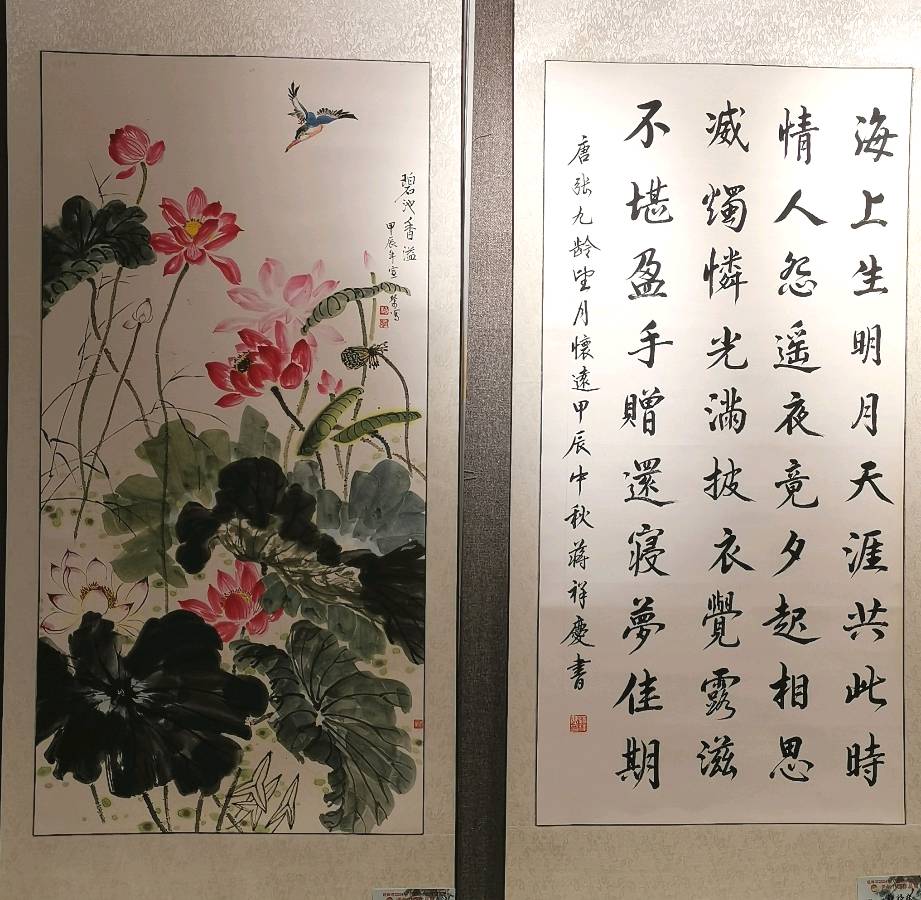 碧池香溢
甲辰年宣 写
海上生明月天涯共此時
情人怨遥夜竟夕起相思
滅燭憐光滿披衣覺露滋
不堪盈手贈還寢夢佳期
唐張九齡望月懷遠甲辰中秋蔣祥慶書